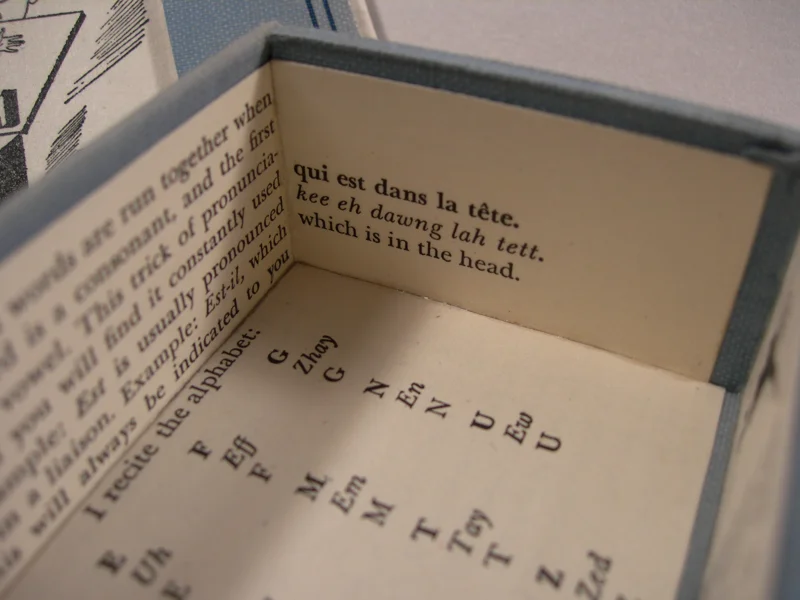 words are run together when
is a consonant, and the first
vowel. This trick of pronuncia-
you will find it constantly used
Est is usually pronounced
a liaison. Example: Est-il, which
will always be indicated to you
I recite the alphabet:
qui est dans la tête.
kee eh dawng lah tett.
which is in the head.
E F G
Uh Eff Zhay
E F G
M N
Em En
M N
T U
Tay Ew
T U
Z
Zed